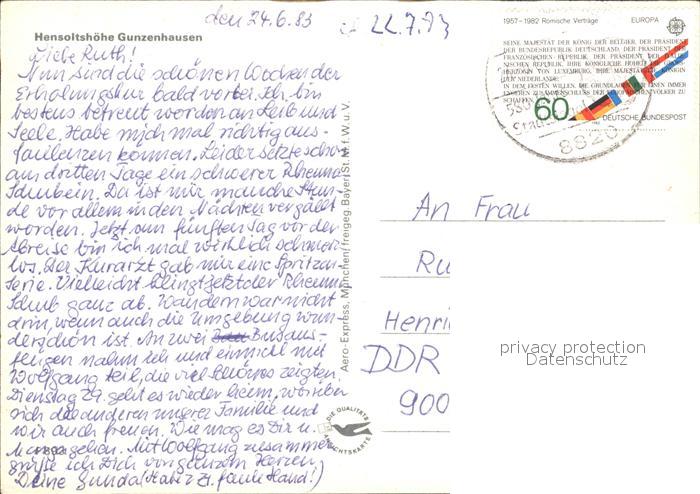 den 24.6.83
22.7.83
Hensoltshöhe Gunzenhausen
Liebe Ruth!
Nun sind die schönen Wochen der
Erholungskur bald vorbei. Ich bin
bestens betreut worden an Leib und
Seele. Habe mich mal richtig aus-
faulenzen können. Leider setzte schon
am dritten Tage ein schwerer Rheuma
Schub ein. Da ist mir manche Stun-
de vor allem in den Nächten vergällt
worden. Jetzt am fünften Tag vor der
Abreise bin ich mal wirklich schmerz
los. Der Kurarzt gab mir eine Spritzen
serie. Vielleicht klingt jetzt der Rheuma
Schub ganz ab. Wandern war nicht
drin, wenn auch die Umgebung wun-
derschön ist. An zwei Busaus-
flügen nahm ich und einmal mit
Wolfgang teil, die viel Schönes zeigten.
Dienstag geht es wieder heim, worüber
sich die anderen unserer Familie und
wir auch freuen. Wie mag es Dir u.
gehen. Mit Wolfgang zusammen
grüße ich Dich von ganzem Herzen
Deine Gunda
Aero-Express, München/freigeg. Bayer. St. M. f. W. u. V.
DIE QUALITÄTS
ANSICHTSKARTE
1957-1982 Römische Verträge EUROPA
SEINE MAJESTÄT DER KÖNIG DER BELGIER, DER PRÄSIDENT
DER BUNDESREPUBLIK DEUTSCHLAND, DER PRÄSIDENT DER
FRANZÖSISCHEN REPUBLIK, DER PRÄSIDENT DER ITALIE-
NISCHEN REPUBLIK, IHRE KÖNIGLICHE HOHEIT DIE GROSS-
HERZOGIN VON LUXEMBURG, IHRE MAJESTÄT DIE KÖNIGIN
DER NIEDERLANDE
IN DEM FESTEN WILLEN, DIE GRUNDLAGEN FÜR EINEN IMMER
ENGEREN ZUSAMMENSCHLUSS DER EUROPÄISCHEN VÖLKER ZU
SCHAFFEN
60
DEUTSCHE BUNDESPOST
8820
An Frau
Ru
Henri
DDR
900
privacy protection
Datenschutz